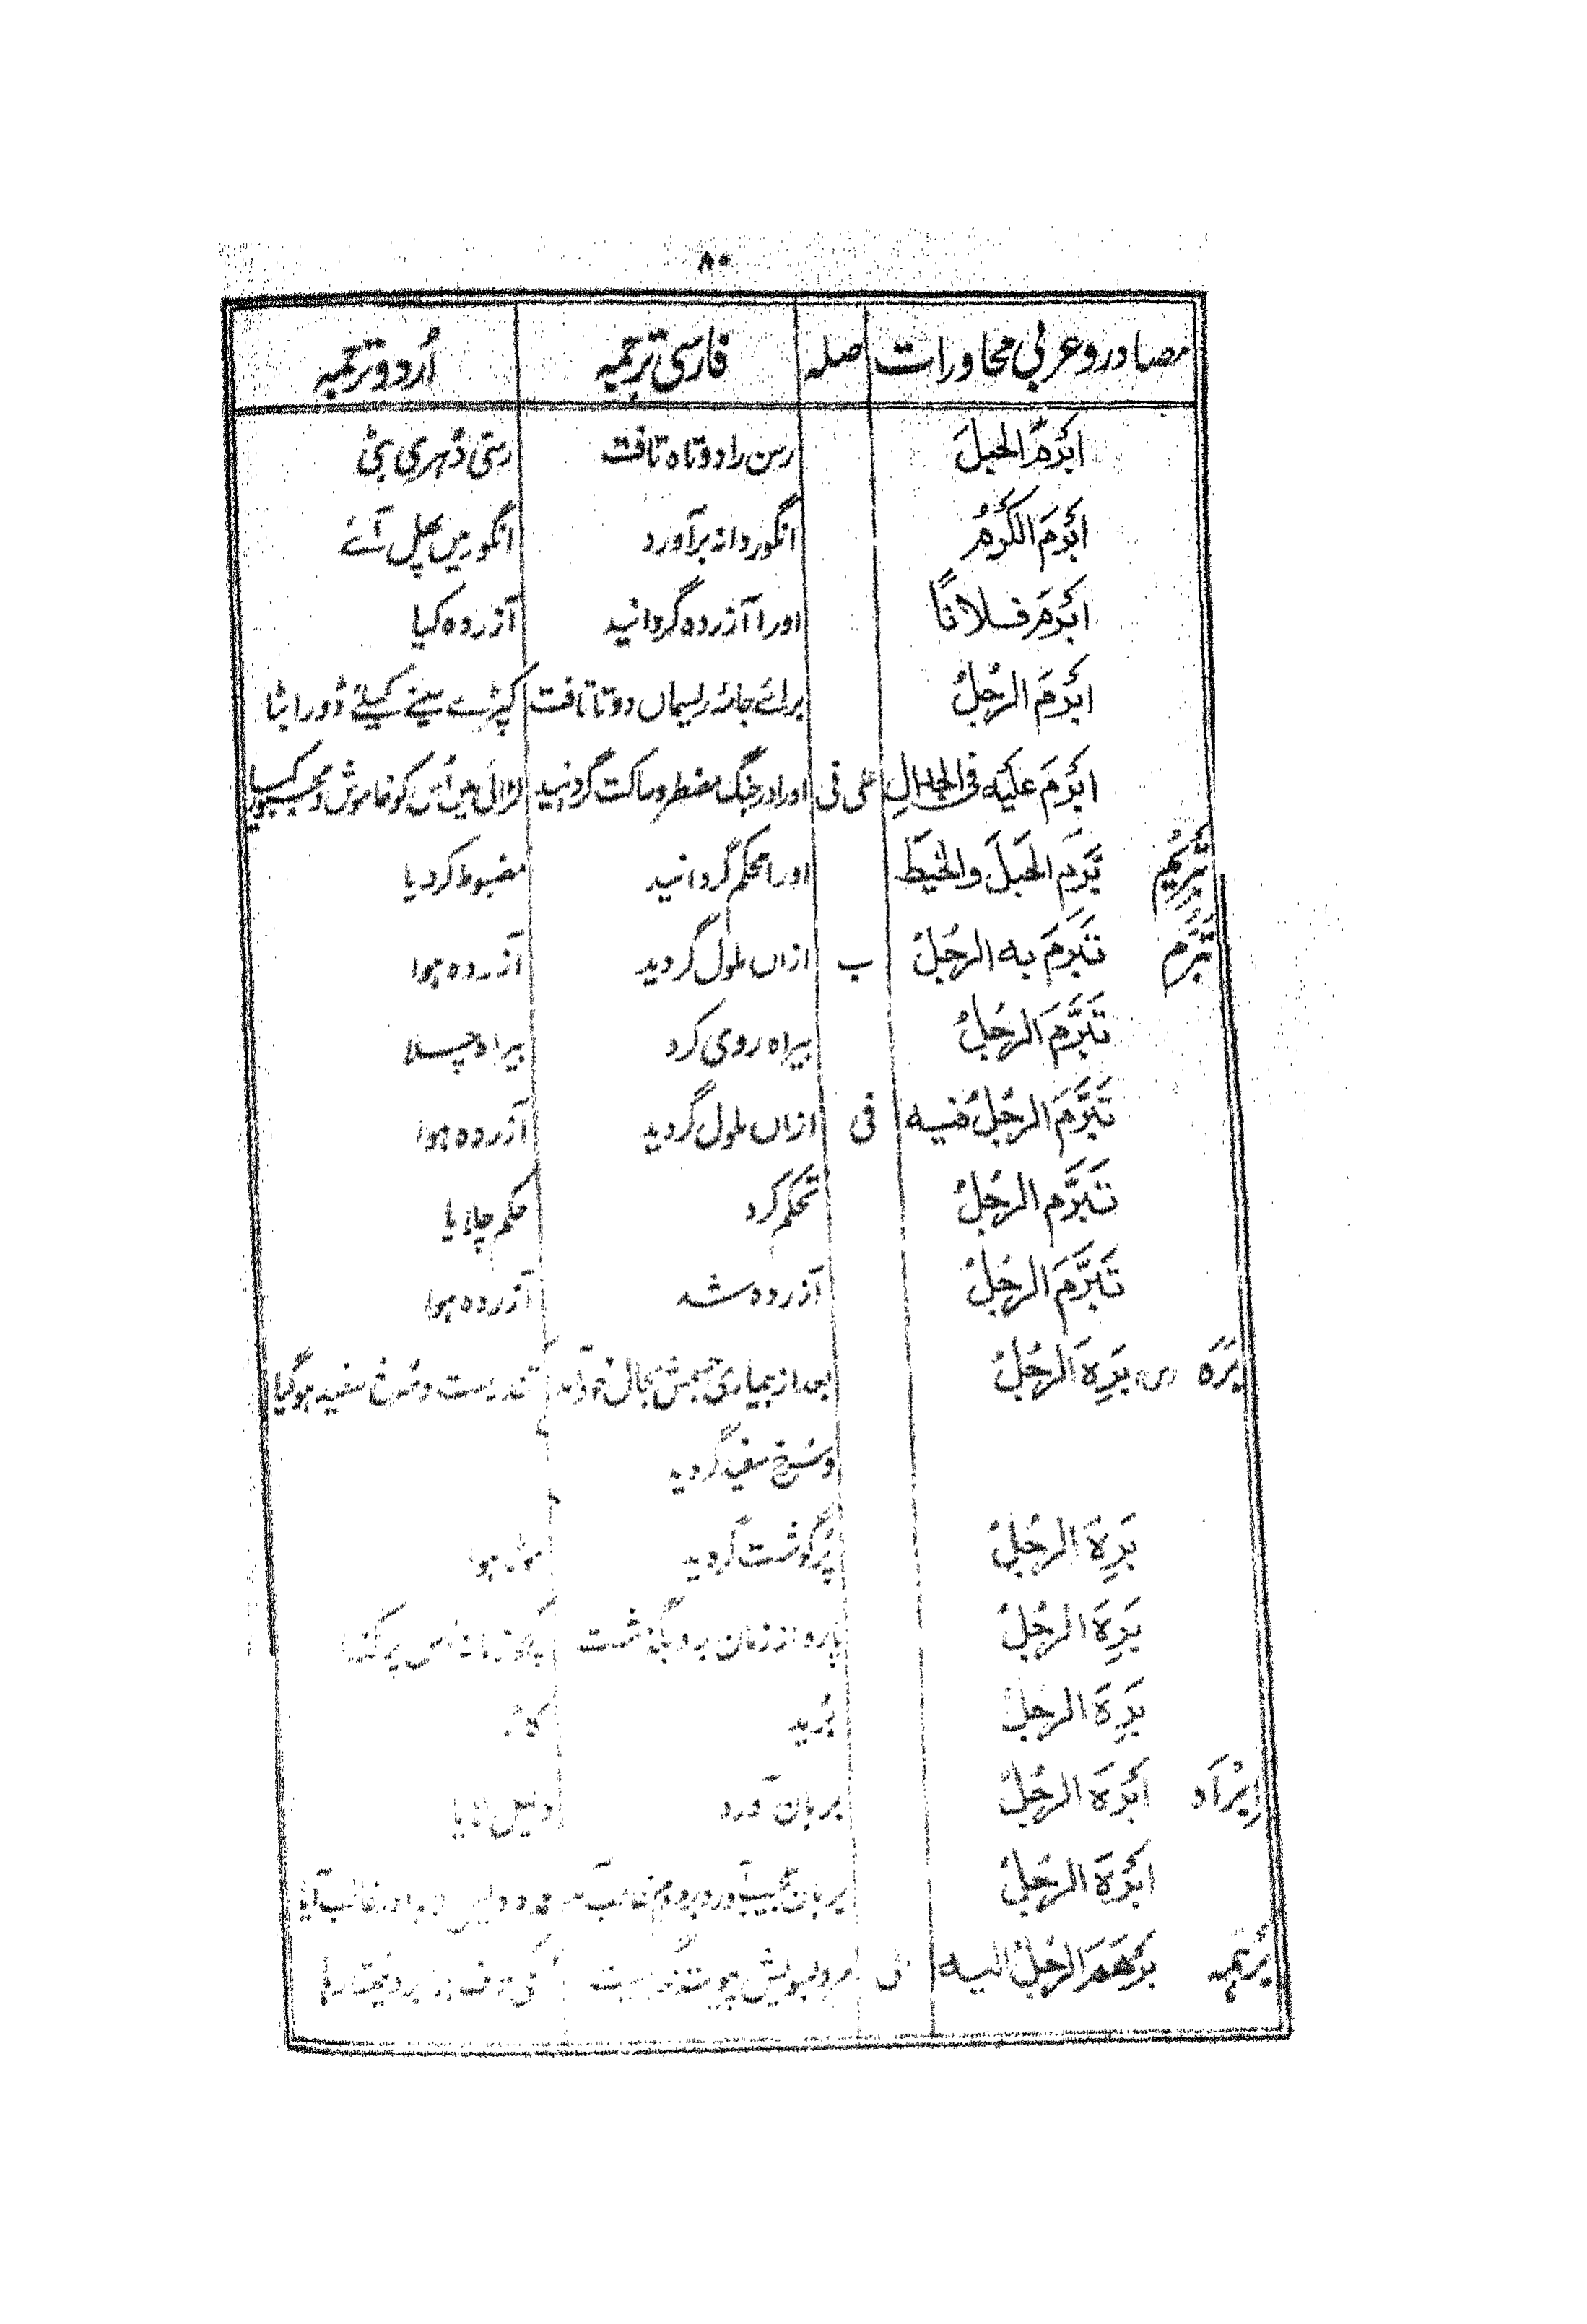 ۸۰
مصادر و عربی محاورات صلہ فارسی ترجمہ اُردو ترجمہ
اَبْرَمَ الحَبلَ رسن را دوتاہ تافت رسّی دُہری بٹی
اَبْرَمَ الکَرْمُ انگور دانہ برآورد انگور میں پھل آئے
اَبْرَمَ فلاناً اورا آزردہ گردانید آزردہ کیا
اَبْرَمَ الرَّجُلُ برائے جامہ ریسماں دوتا تافت کپڑے سینے کیلئے ڈورا بٹا
اَبْرَمَ عَلَیْہِ فی الجِدالِ علی فی اورا در جنگ مضطر و ساکت گردانید لڑائی میں اُس کو خاموش و مجبور کیا
تَبْرِیْم بَرَّمَ الحَبلَ والخَیطَ اورا محکم گردانید مضبوط کردیا
تَبَرُّم تَبَرَّمَ بہ الرَّجُلُ ب ازاں ملول گردید آزردہ ہوا
تَبَرَّمَ الرَّجُلُ بیراہ روی کرد بیراہ چلا
تَبَرَّمَ الرَّجُلُ فیہ فی ازاں ملول گردید آزردہ ہوا
تَبَرَّمَ الرَّجُلُ تحکم کرد حکم چلایا
تَبَرَّمَ الرَّجُلُ آزردہ شد آزردہ ہوا
بَرَہ (س) بَرِہَ الرَّجُلُ بعد از بیماری جسمش بحال خود آمد تندرست و سُرخ سفید ہوگیا
و سُرخ سفید گردید
بَرِہَ الرَّجُلُ پُرگوشت گردید ہوا
بَرِہَ الرَّجُلُ پارہ از زمان برو بگذشت کچھ زمانہ اس پر گذرا
بَرِہَ الرَّجُلُ بُرید کاٹا
اِبْرَاہ اَبْرَہَ الرَّجُلُ برہان آورد دلیل لایا
اَبْرَہَ الرَّجُلُ برہان عجیب آورد و غالب آیا
بَرْہَمَہ بَرْهَمَ الرَّجُلُ الیہ